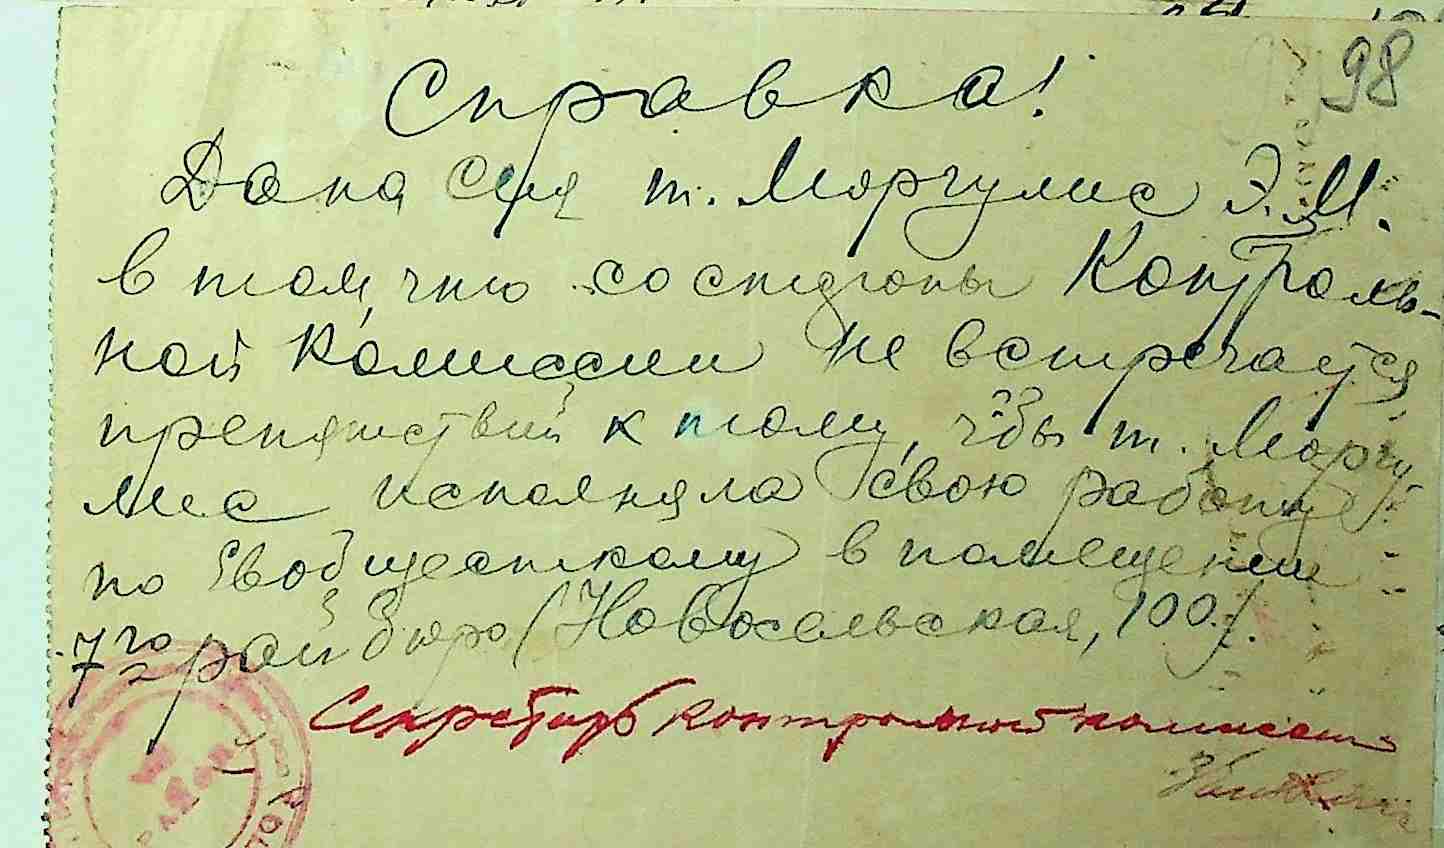 98
Справка!
Дана сия т. Моргулис Э.М.
в том, что со стороны Контроль-
ной Комиссии не встречается
препятствий к тому, чтобы т. Моргу
лис исполняла свою работу
по Евобщесткому в помещении
7го райбюро (Новосельская, 100).
Секретарь контрольной комиссии